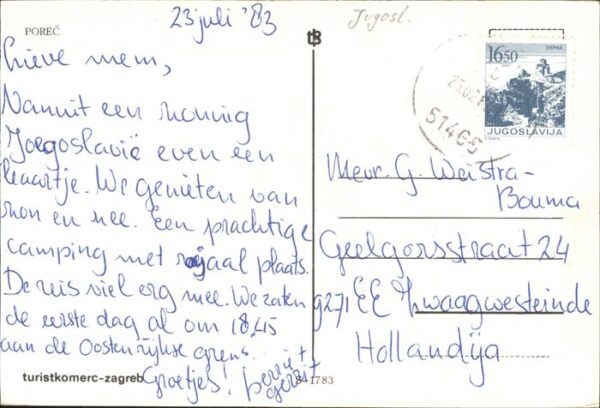 23 juli '83
Jugosl.
POREČ
lieve mem,
Vanuit een zonnig
Joegoslavië even een
kaartje. We genieten van
zon en zee. Een prachtige
camping met rojaal plaats.
De reis viel erg mee. We zaten
de eerste dag al om 18.45
aan de Oostenrijkse grens.
Groetjes!
gerrit
turistkomerc-zagreb
1783
16.50
JUGOSLAVIJA
51465
Mevr. G. Weistra-
Bouma
Geelgorsstraat 24
9271 EE Zwaagwesteinde
Hollandija